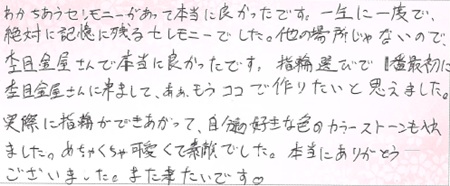 わかちあうセレモニーがあって本当に良かったです。一生に一度で、
絶対に記憶に残るセレモニーでした。他の場所じゃないので、
杢目金屋さんで本当に良かったです。指輪選びで1番最初に
杢目金屋さんに来まして、ああ、もうココで作りたいと思えました。
実際に指輪ができあがって、自分の好きな色のカラーストーンも入れ
ました。めちゃくちゃ可愛くて素敵でした。本当にありがとう
ございました。また来たいです♡